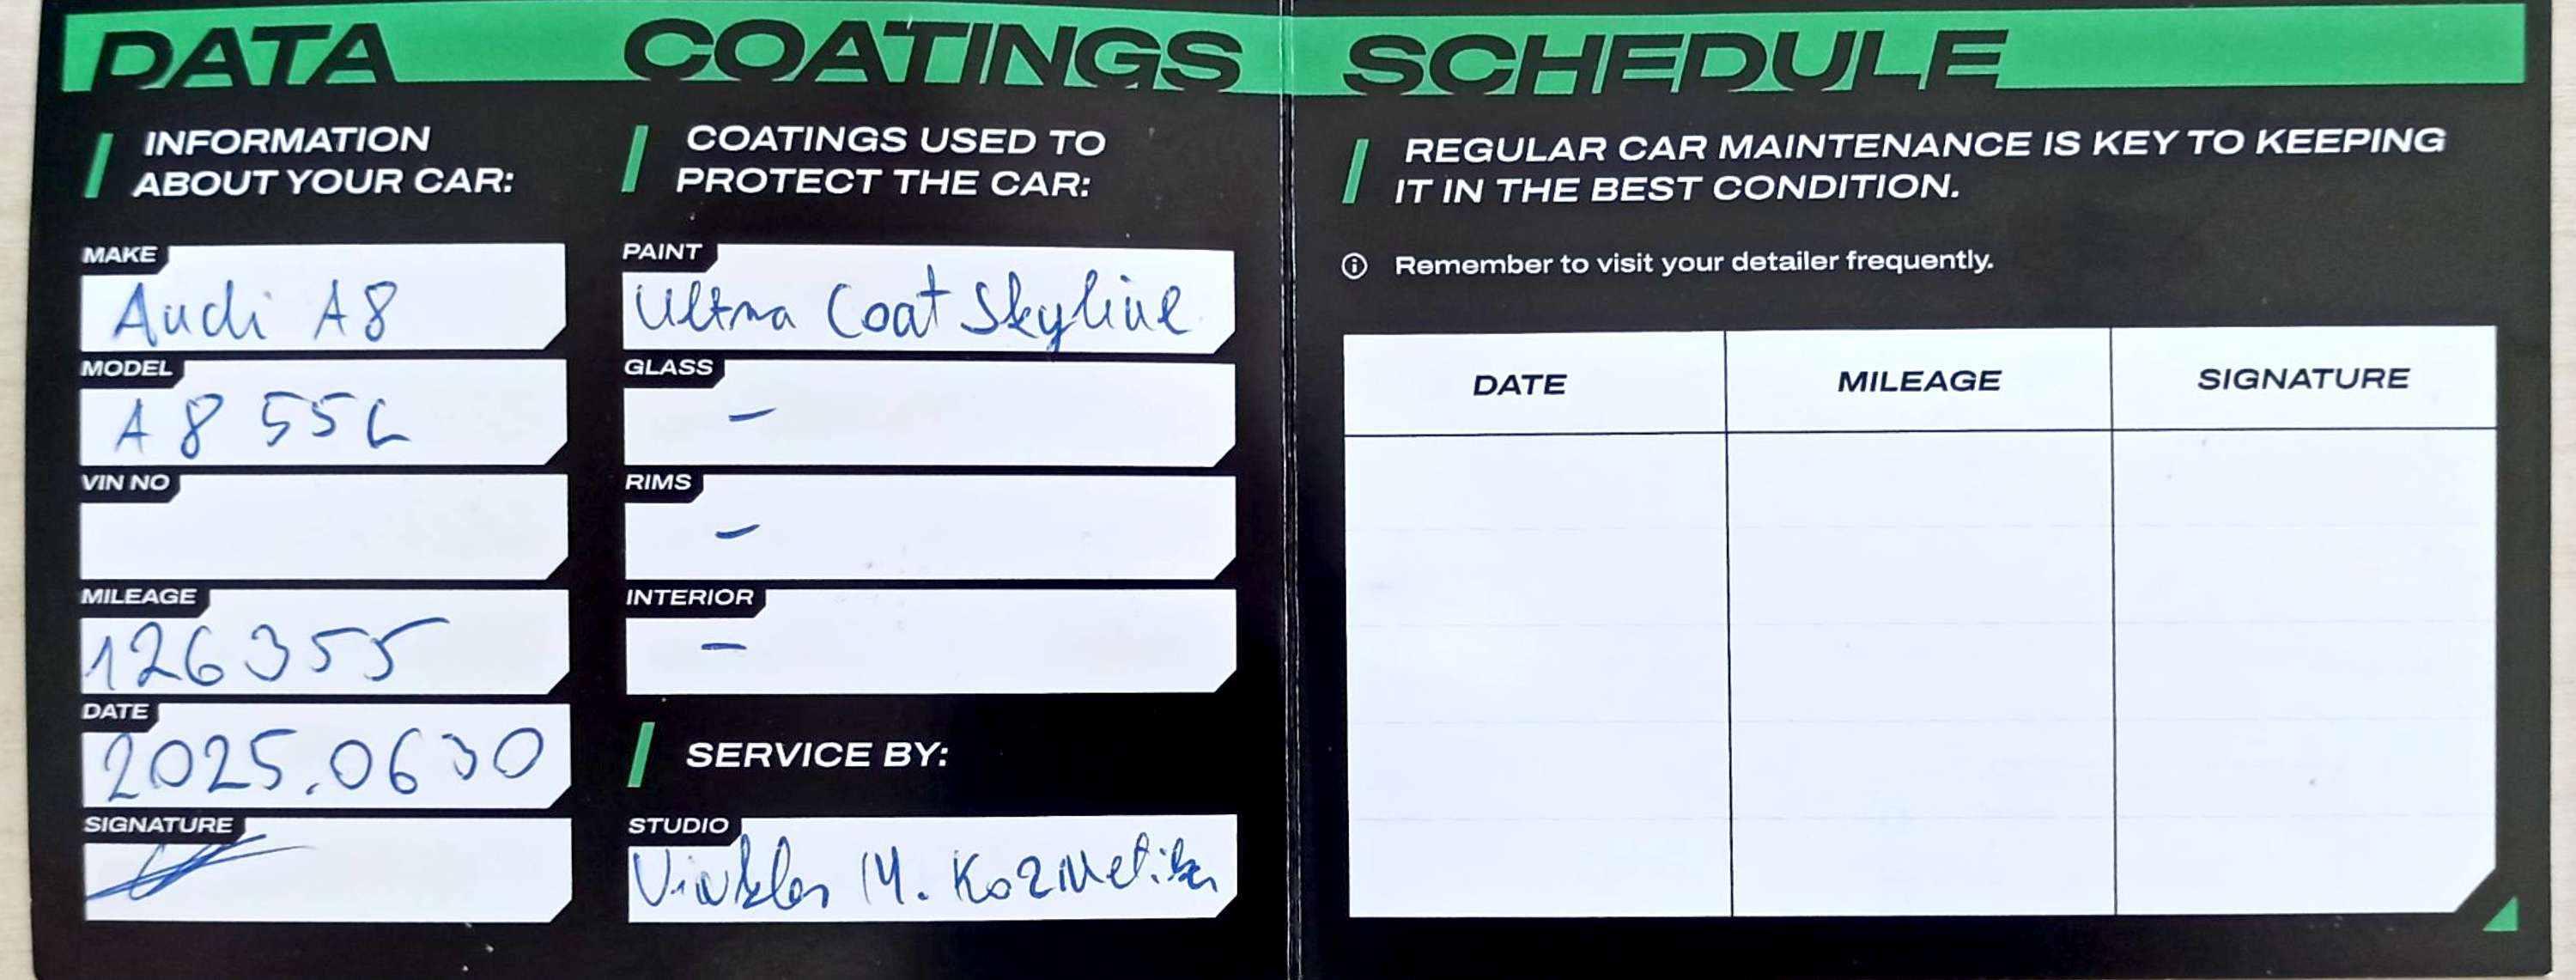 DATA
INFORMATION
ABOUT YOUR CAR:
MAKE
Audi A8
MODEL
A8 55L
VIN NO
MILEAGE
126355
DATE
2025.0630
SIGNATURE
COATINGS
COATINGS USED TO
PROTECT THE CAR:
PAINT
Ultra Coat Skyline
GLASS
-
RIMS
-
INTERIOR
-
SERVICE BY:
STUDIO
M. Kozmetika
SCHEDULE
REGULAR CAR MAINTENANCE IS KEY TO KEEPING
IT IN THE BEST CONDITION.
Remember to visit your detailer frequently.
DATE MILEAGE SIGNATURE